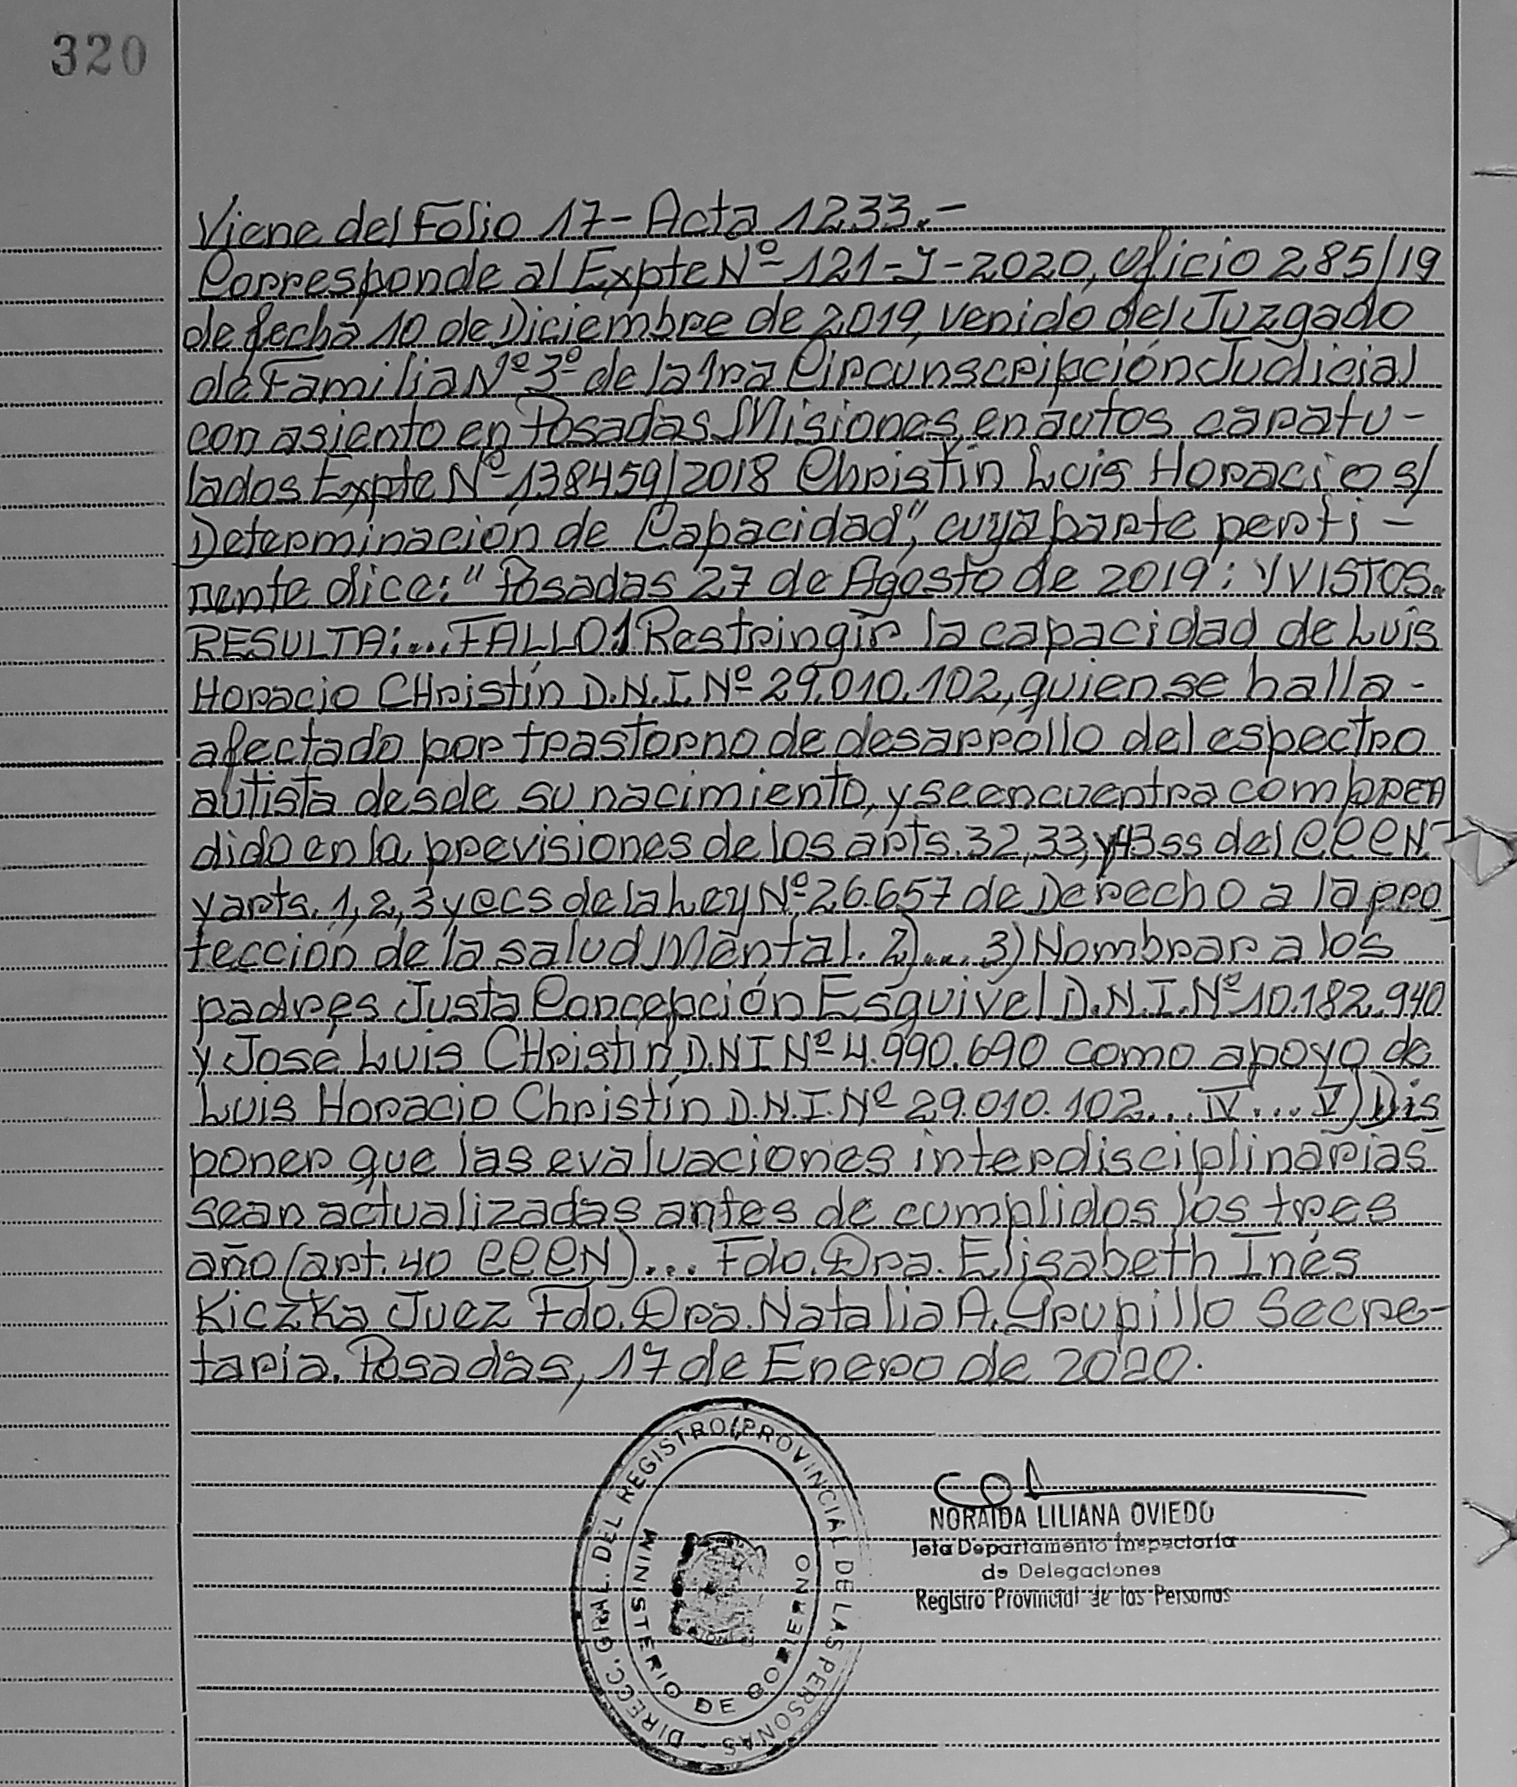 320
Viene del Folio 17 - Acta 1233.-
Corresponde al Expte Nº 121-J-2020, Oficio 285/19
de fecha 10 de Diciembre de 2019, venido del Juzgado
de Familia Nº 3º de la 1ra Circunscripción Judicial
con asiento en Posadas Misiones, en autos caratu-
lados Expte Nº 138459/2018 Christín Luis Horacio s/
Determinación de Capacidad", cuya parte perti-
nente dice: "Posadas 27 de Agosto de 2019: Y VISTOS..
RESULTA:... FALLO 1 Restringir la capacidad de Luis
Horacio CHristín D.N.I. Nº 29.010.102, quien se halla-
afectado por trastorno de desarrollo del espectro
autista desde su nacimiento, y se encuentra compren
dido en la previsiones de los arts. 32, 33, y 43 ss del CCCN-
y arts. 1, 2, 3 y ccs de la Ley Nº 26.657 de Derecho a la pro_
tección de la salud Mental. 2)... 3) Nombrar a los
padres Justa Concepción Esquivel D.N.I. Nº 10.182.940
y José Luis CHristín D.N.I Nº 4.990.690 como apoyo de
Luis Horacio Christín D.N.I. Nº 29.010.102... IV... V) Dis
poner que las evaluaciones interdisciplinarias
sean actualizadas antes de cumplidos los tres
año (art. 40 CCCN)... Fdo. Dra. Elisabeth Inés
Kiczka Juez Fdo. Dra. Natalia A. Grupillo Secre-
taria. Posadas, 17 de Enero de 2020.
DIRECC. GRAL. DEL REGISTRO PROVINCIAL DE LAS PERSONAS -
MINISTERIO DE GOBIERNO
NORAIDA LILIANA OVIEDO
Jefa Departamento Inspectoria
de Delegaciones
Registro Provincial de las Personas